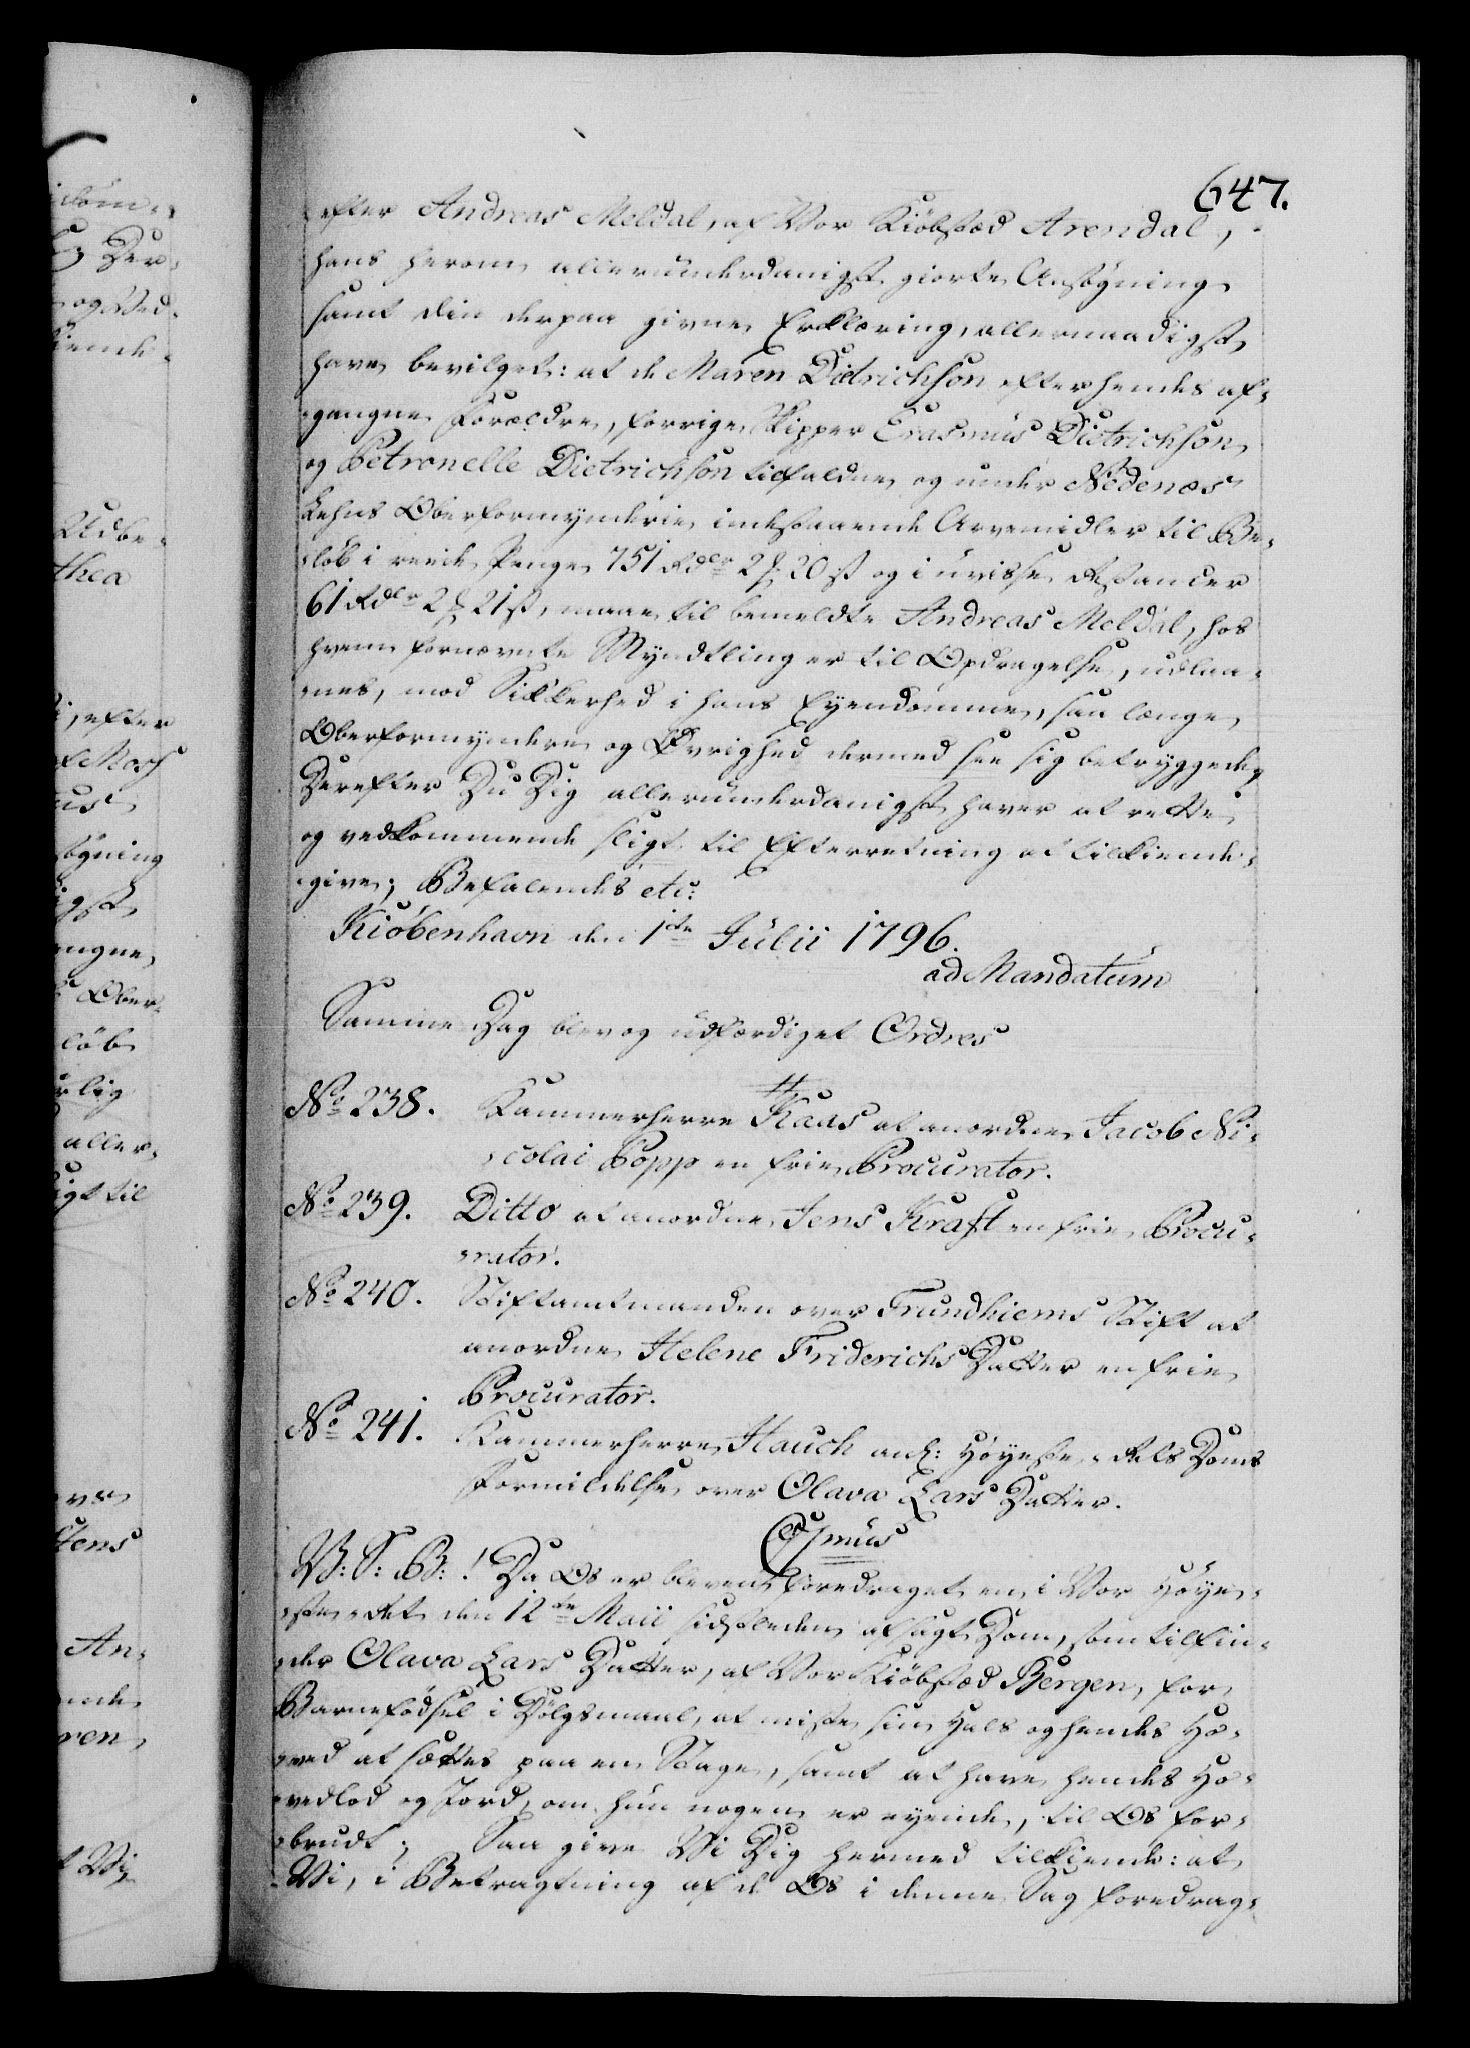 647.
efter Andreas Meldal, af Vor Kiöbstæd Arendal,
hans herom allerunderdanigst giorte Ansögning
samt din derpaa givne Erklæring, allernaadigst
have bevilget: at de Maren Didrichson efter hendes af-
gangne Forældre, forrige Skipper Erasmus Dietrichson
og Petronelle Dietrichson tilfaldne og under Nedenæs
Lehns Oberformynderie indestaaende Arvemidler til Be-
löb i reede Penge 751 Rdlr 2 ₰ 20 ß og i uvisse Restancer
61 Rdlr 2 ₰ 21 ß, maae til bemeldte Andreas Meldal, hos
hvem fornævnte Myndtling er til Opdragelse, udlaa-
nes, mod Sikkerhed i hans Eyendomme, saa længe
Oberformyndere og Øvrighed dermed see sig betryggede;
Derefter Du Dig allerunderdanigst haver at rette
og vedkommende sligt til Efterretning at tilkiende-
give; Befalendes etc:
Kiöbenhavn den 1ste Julii 1796.
ad Mandatum
Samme Dag blev og udfærdiget Ordres
No 238. Kammerherre Kaas at anordne Jacob Ni-
colai Popp en frie Procurator.
No 239. Ditto at anordne Jens Kraft en frie Procu-
rator.
No 240. Stiftamtmanden over Trundhiems Stift at
anordne Helene Friderichs Datter en frie
Procurator.
No 241. Kammerherre Hauch anl: Höyeste-Rets Doms
Formildelse over Olava Lars Datter.
V: S: B:! Da Os er bleven foredraget en i Vor Höye-
ste-Ret den 12te Maii sidstleden afsagt Dom, som tilfin-
der Olava Lars Datter, af Vor Kiöbstæd Bergen, for
Barnefödsel i Dölgsmaal, at miste sin Hals og hendes Ho-
ved at sættes paa en Stage, samt at have hendes Ho-
vedlod og Jord, om hun nogen er eyende, til Os for-
brudt; Saa give Vi Dig hermed tilkiende: at
Vi, i Betragtning af de Os i denne Sag foredrag-